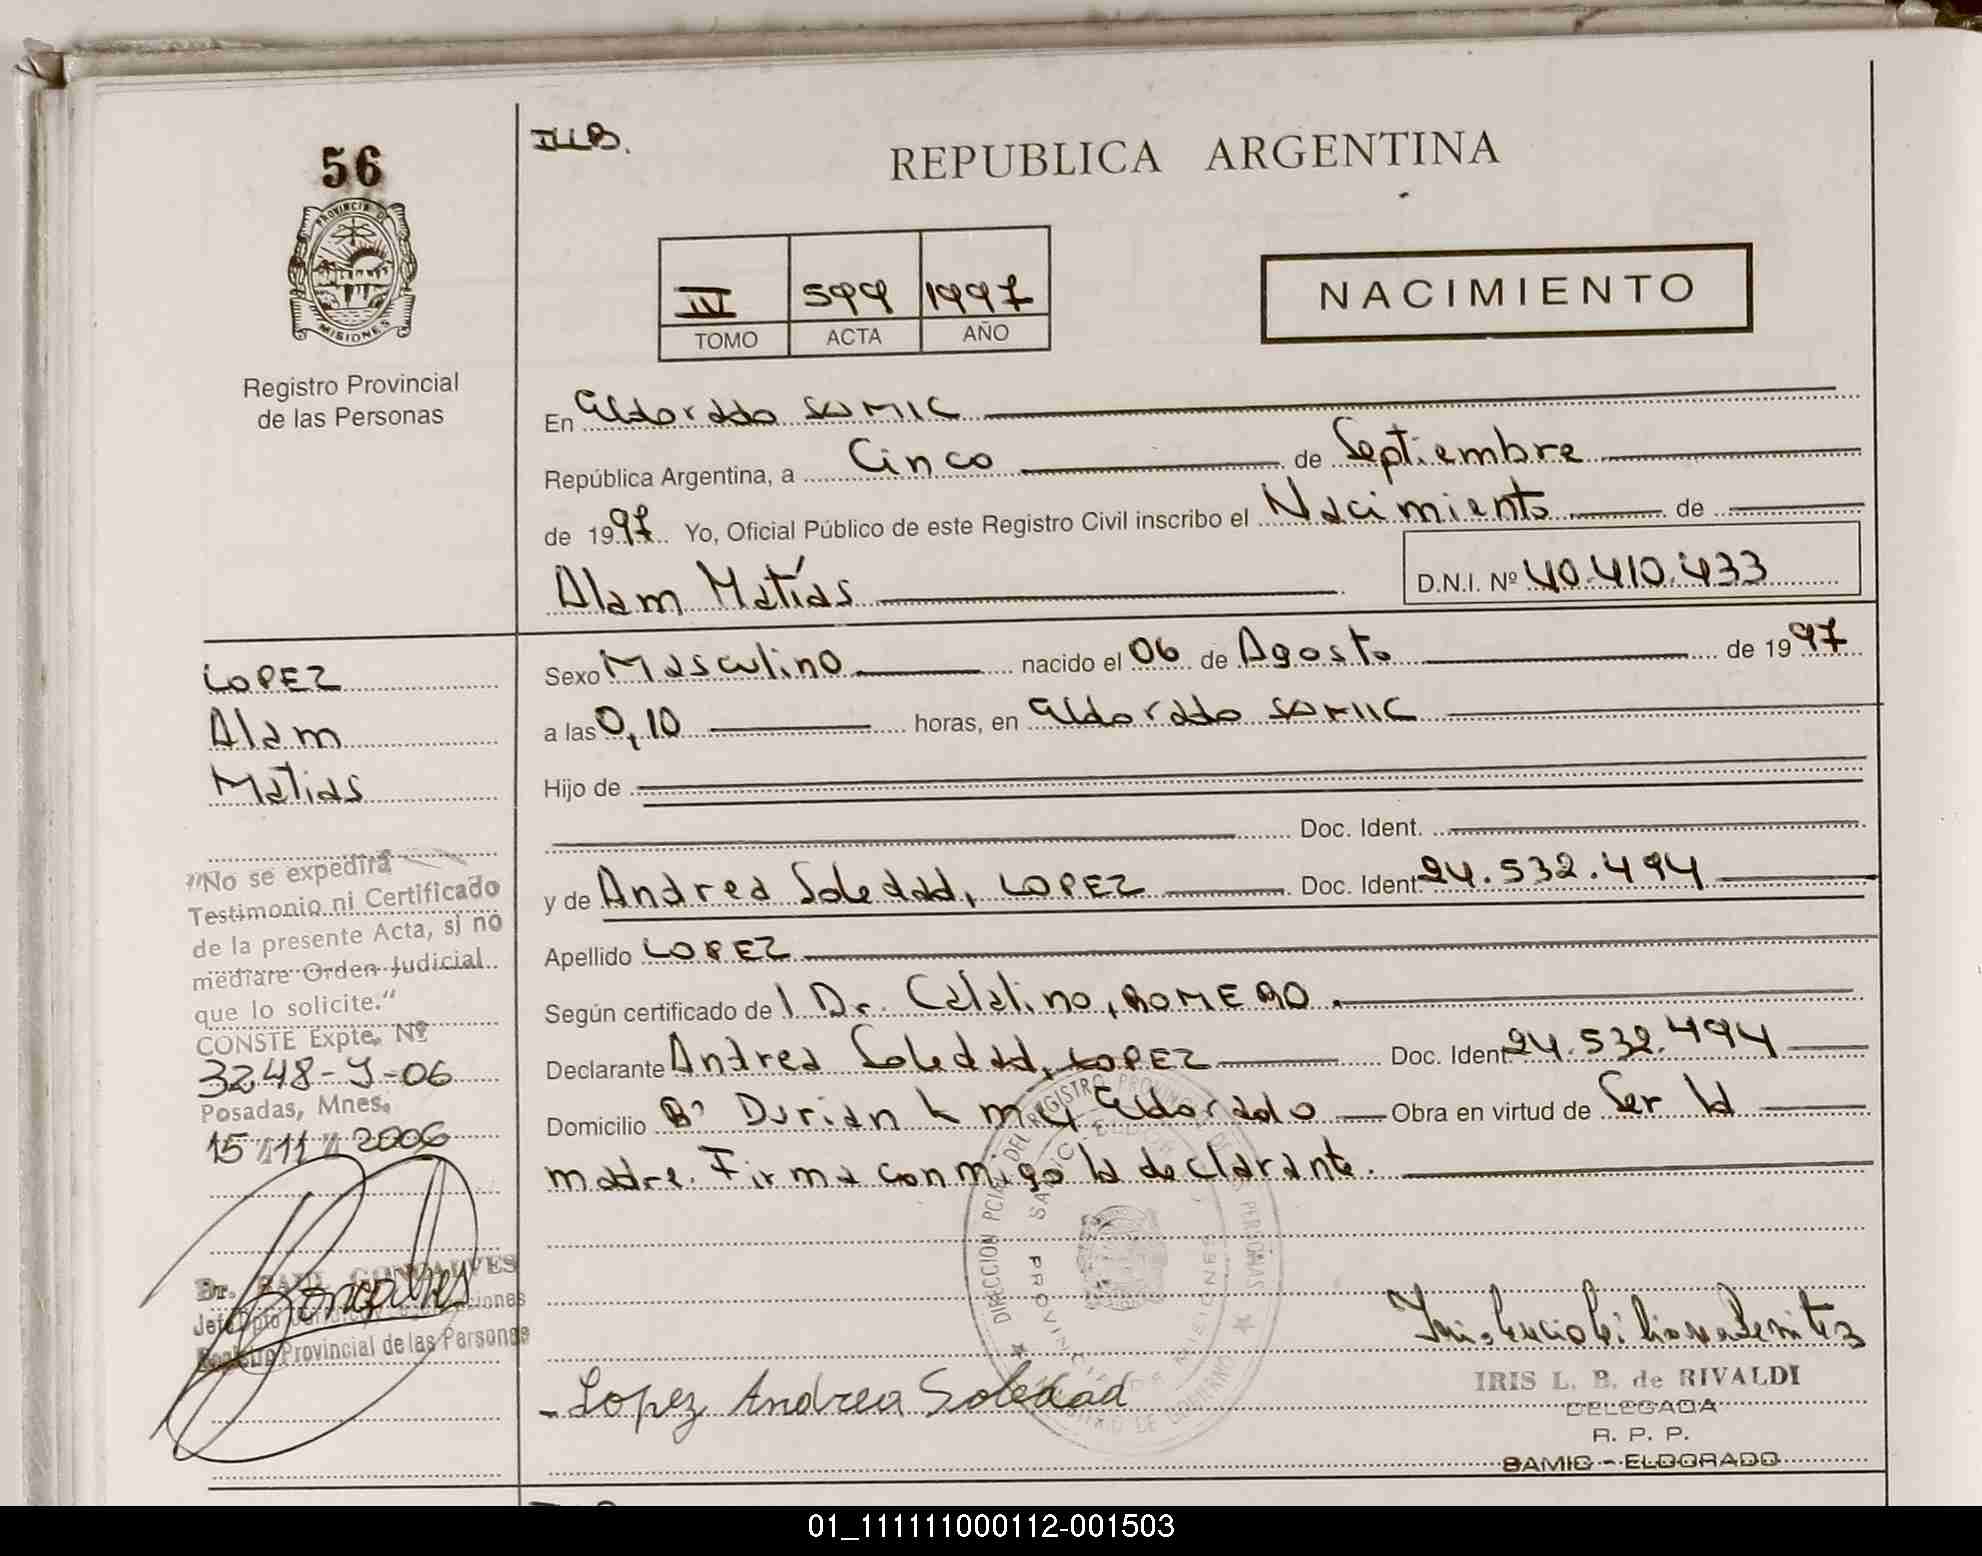 56
PROVINCIA DE
MISIONES
Registro Provincial
de las Personas
ILLB.
REPUBLICA ARGENTINA
IV 599 1997
TOMO ACTA AÑO
NACIMIENTO
En Eldorado SAMIC
República Argentina, a Cinco de Septiembre
de 1997 Yo, Oficial Público de este Registro Civil inscribo el Nacimiento de
Alam Matías
D.N.I. Nº 40.410.433
LOPEZ
Alam
Matias
Sexo Masculino nacido el 06 de Agosto de 1997
a las 0,10 horas, en Eldorado SAMIC
Hijo de
Doc. Ident.
y de Andrea Soledad, LOPEZ Doc. Ident. 24.532.494
Apellido LOPEZ
Según certificado de l Dr. Catalino, ROMERO.
Declarante Andrea Soledad, LOPEZ Doc. Ident. 24.532.494
Domicilio Bº Durian k m 4 Eldorado Obra en virtud de Ser la
madre. Firma conmigo la declarante.
"No se expedirá
Testimonio ni Certificado
de la presente Acta, si no
mediare Orden Judicial
que lo solicite."
CONSTE Expte. Nº
3248-Y-06
Posadas, Mnes.
15/11/2006
Dr. RAUL GONCALVES
Registro Provincial de las Personas
DIRECCION PCIAL DEL REGISTRO PROVINCIAL DE LAS PERSONAS
SAMIC ELDORADO
PROVINCIA DE MISIONES
MINISTERIO DE GOBIERNO
Lopez Andrea Soledad
IRIS L. B. de RIVALDI
DELEGADA
R. P. P.
SAMIC - ELDORADO
01_111111000112-001503